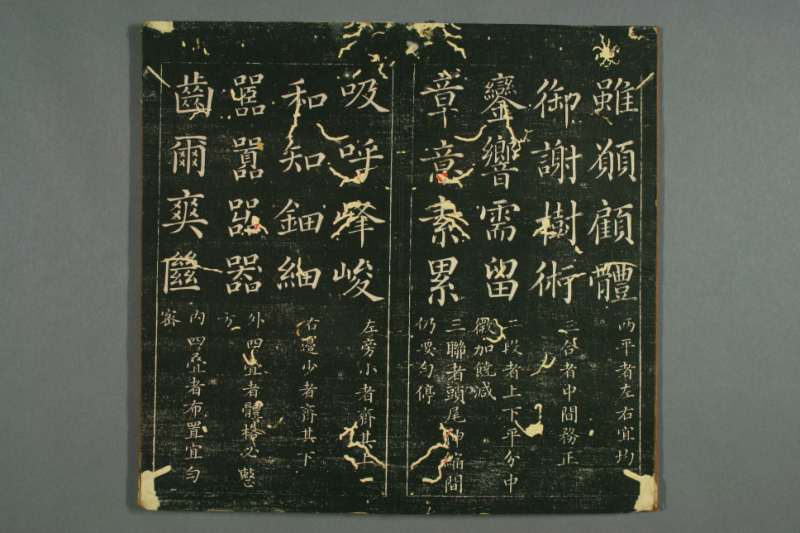 雖願顧體
兩平者左右宜均
御謝樹術
三合者中間務正
鑾響需留
二段者上下平分中
微加饒減
章意素累
三聯者頭尾伸縮間
仍要勻停
吸呼峰峻
左旁小者齊其上
和知鈿細
右邊少者齊其下
囂器器
外四疊者體格必整
方
齒爾爽
內四疊者布置宜勻
審